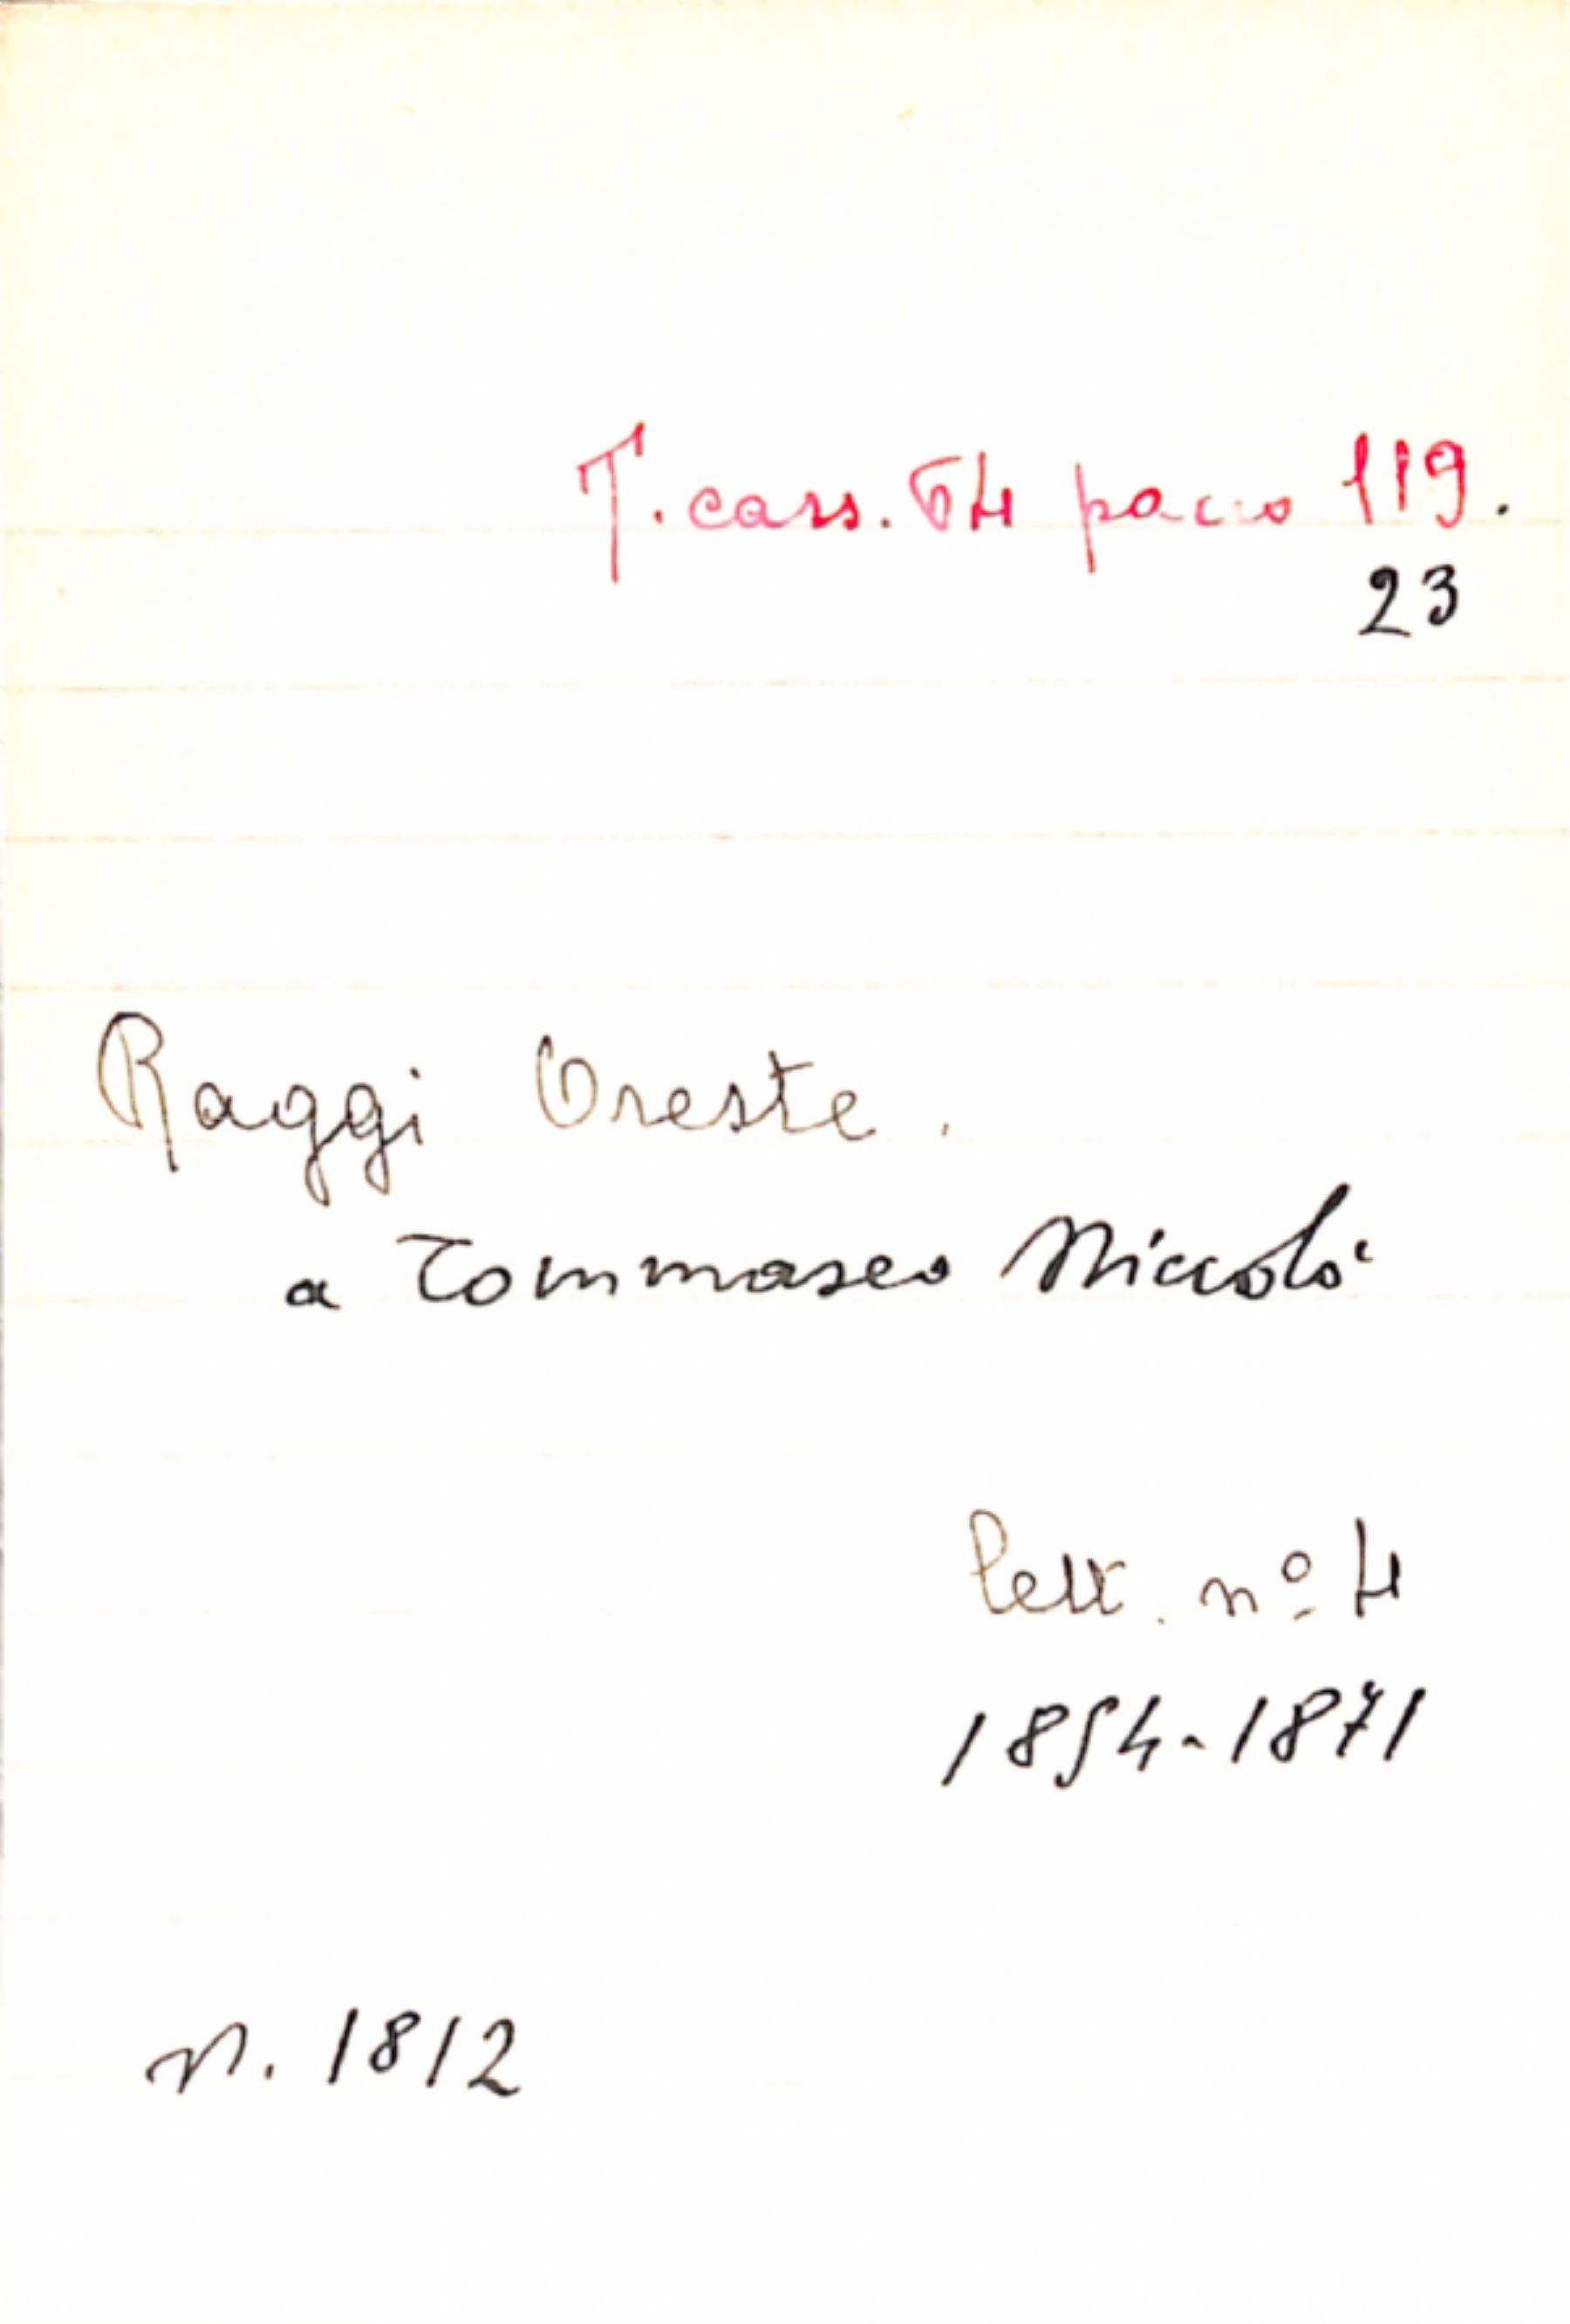 T. cass. 64 pacco 119.
23
Raggi Oreste.
a Tommaseo Niccolò
lett. nº 4
1854-1871
N. 1812